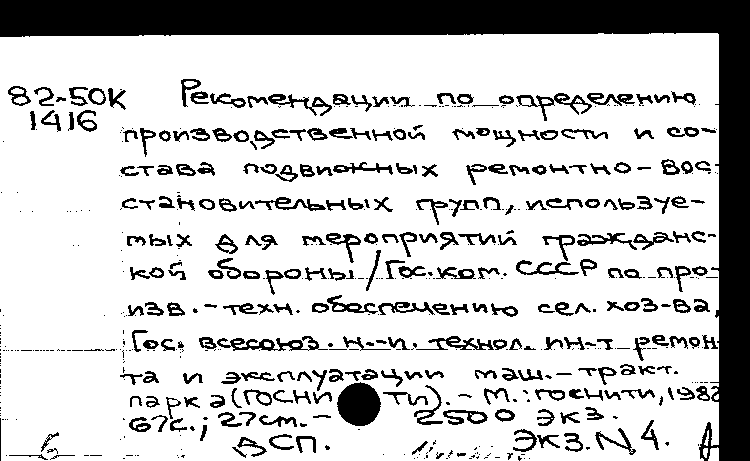 82-50К Рекомендации по определению
1416
производственной мощности и со-
става подвижных ремонтно-вос-
становительных групп, используе-
мых для мероприятий гражданс-
кой обороны / Гос. ком. СССР по про-
изв.-техн. обеспечению сел. хоз-ва,
Гос. всесоюз. н.-и. технол. ин-т ремон-
та и эксплуатации маш.-тракт.
парка (ГОСНИТИ). - М.: ГОСНИТИ, 1982
67с.; 27см. - 2500 экз.
ДСП. Экз. N 4.
6